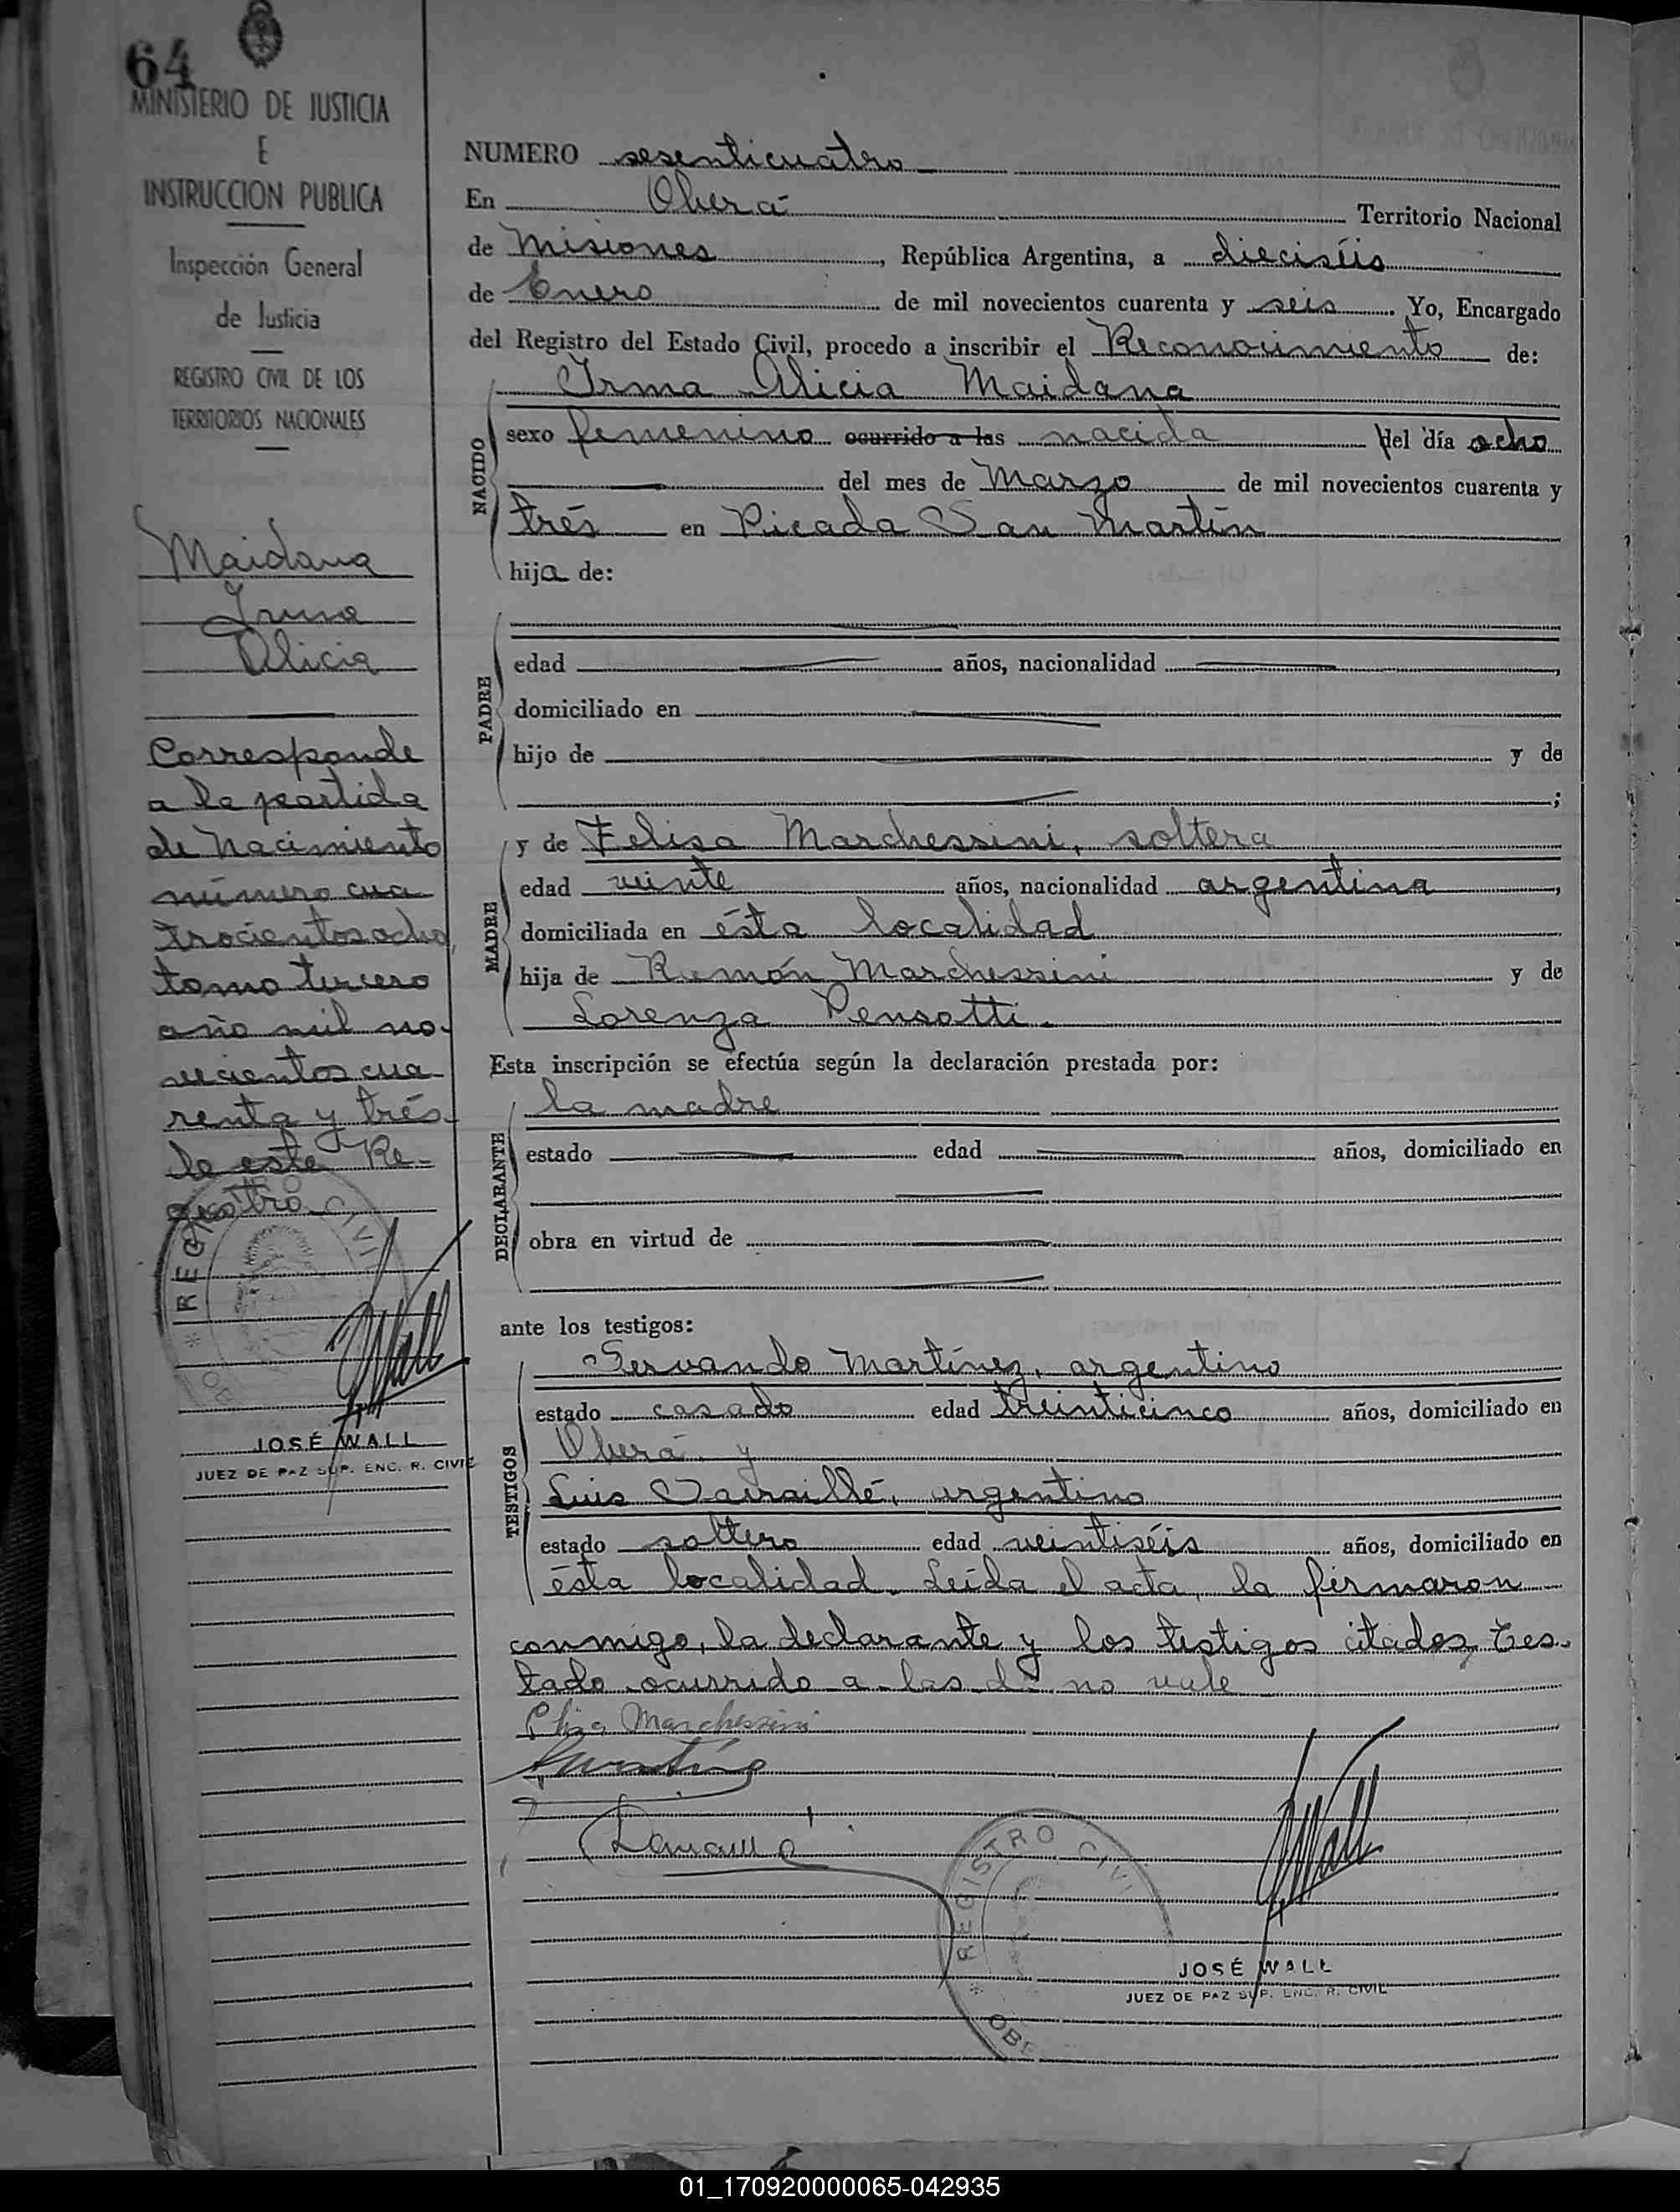 64
MINISTERIO DE JUSTICIA
E
INSTRUCCION PUBLICA
Inspección General
de Justicia
REGISTRO CIVIL DE LOS
TERRITORIOS NACIONALES
Maidana
Irma
Alicia
Corresponde
a la partida
de nacimiento
número cua
trocientos ocho,
tomo tercero
año mil no-
vecientos cua
renta y trés
de este Re-
gistro
REGI CIVI
OB
JOSÉ WALL
JUEZ DE PAZ SUP. ENC. R. CIVIL
NUMERO sesenticuatro
En Oberá Territorio Nacional
de Misiones, República Argentina, a dieciséis
de Enero de mil novecientos cuarenta y seis. Yo, Encargado
del Registro del Estado Civil, procedo a inscribir el Reconocimiento de:
NACIDO
Irma Alicia Maidana
sexo femenino ocurrido a las nacida del día ocho
del mes de Marzo de mil novecientos cuarenta y
trés en Picada San Martín
hija de:
PADRE
edad años, nacionalidad ,
domiciliado en
hijo de y de
;
MADRE
y de Felisa Marchessini, soltera
edad veinte años, nacionalidad argentina,
domiciliada en ésta localidad
hija de Ramón Marchessini y de
Lorenza Pensotti.
Esta inscripción se efectúa según la declaración prestada por:
DECLARANTE
la madre
estado edad años, domiciliado en
obra en virtud de
ante los testigos:
TESTIGOS
Servando Martínez, argentino
estado casado edad treinticinco años, domiciliado en
Oberá y
Luis argentino
estado soltero edad veintiséis años, domiciliado en
ésta localidad. Leída el acta, la firmaron
conmigo, la declarante y los testigos citados, tes-
tado ocurrido a las d no vale
Marchessini
REGISTRO CIVI
OBE
JOSÉ WALL
JUEZ DE PAZ SUP. ENC. R. CIVIL
01_170920000065-042935